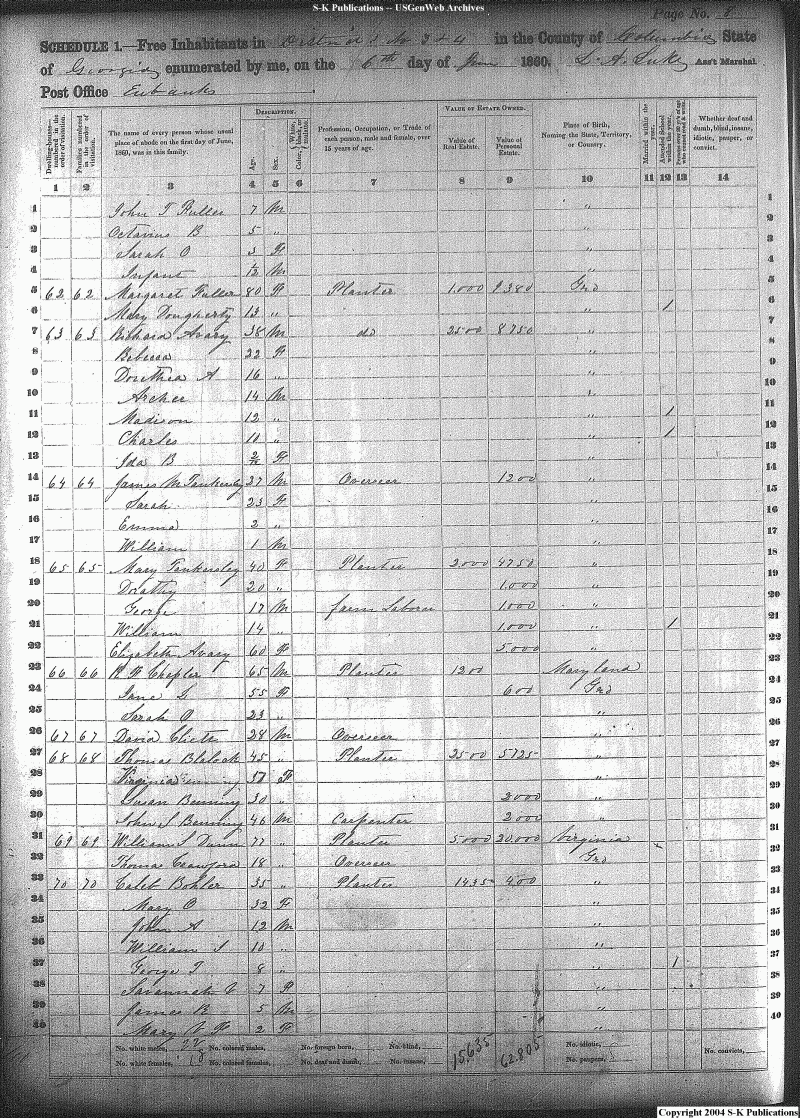 S-K Publications -- USGenWeb Archives
Page No. 8
SCHEDULE 1.—Free Inhabitants in Districts No 3 & 4 in the County of Columbia State
of Georgia enumerated by me, on the 6th day of June 1860. L. A. Luke Ass't Marshal
Post Office Eubanks
Dwelling-houses—numbered in the order of visitation.
Families numbered in the order of visitation.
The name of every person whose usual place of abode on the first day of June, 1860, was in this family.
DESCRIPTION.
Age.
Sex.
Color, White, black, or mulatto.
Profession, Occupation, or Trade of each person, male and female, over 15 years of age.
VALUE OF ESTATE OWNED.
Value of Real Estate.
Value of Personal Estate.
Place of Birth, Naming the State, Territory, or Country.
Married within the year.
Attended School within the year.
Whether deaf and dumb, blind, insane, idiotic, pauper, or convict.
1 2 3 4 5 6 7 8 9 10 11 12 13 14
1 John T Fuller 7 M " 1
2 Octavius B 5 " " 2
3 Sarah O 3 F " 3
4 Infant M " 4
5 62 62 Margaret Fuller 80 F Planter 1.000 9380 Geo 5
6 Mary Dougherty 13 " " 1 6
7 63 63 Richard Avary 38 M do 2500 8750 " 7
8 Rebecca 22 F " 8
9 Dorithea A 16 " " 9
10 Archer 14 M " 10
11 Madison 12 " " 1 11
12 Charles 10 " " 1 12
13 Ida B F " 13
14 64 64 James M Tankersley 27 M Overseer 1200 " 14
15 Sarah 23 F " 15
16 Emma 2 " " 16
17 William 1 M " 17
18 65 65 Mary Tankersley 40 F Planter 2.000 4750 " 18
19 Dorathy 20 " 1.000 " 19
20 George 17 M farm Laborer 1.000 " 20
21 William 14 " 1.000 " 1 21
22 Elizabeth Avary 60 F 5.000 " 22
23 66 66 65 M Planter 1200 Maryland 23
24 Jane S. 55 F 600 Geo 24
25 Sarah O 23 " " 25
26 67 67 David 28 M Overseer " 26
27 68 68 Thomas Blalock 45 " Planter 2500 5725 " 27
28 Virginia 37 F " 28
29 Susan Benning 30 " 2000 " 29
30 John S Benning 46 M Carpenter 2.000 " 30
31 69 69 William S Dunn 77 " Planter 5.000 20.000 Virginia 31
32 Thomas Crawford 18 " Overseer Geo 32
33 70 70 Caleb Bohler 35 " Planter 1435 400 " 33
34 Mary O 32 F " 34
35 John A 12 M " 35
36 William S 10 " " 36
37 George T 8 " " 1 37
38 Savannah V 7 F " 38
39 James B 5 M " 39
40 Mary V F 2 F " 40
No. white males, 22 No. colored males, No. foreign born, No. blind, 15,635 62.805 No. idiotic, No. convicts,
No. white females, 18 No. colored females, No. deaf and dumb, No. insane, No. paupers,
Copyright 2004 S-K Publications